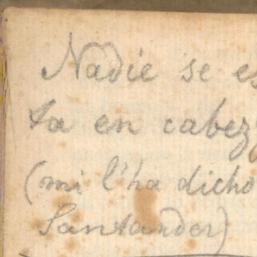 Nadie se es
ta en cabez
(mi l'ha dicho
Santander)